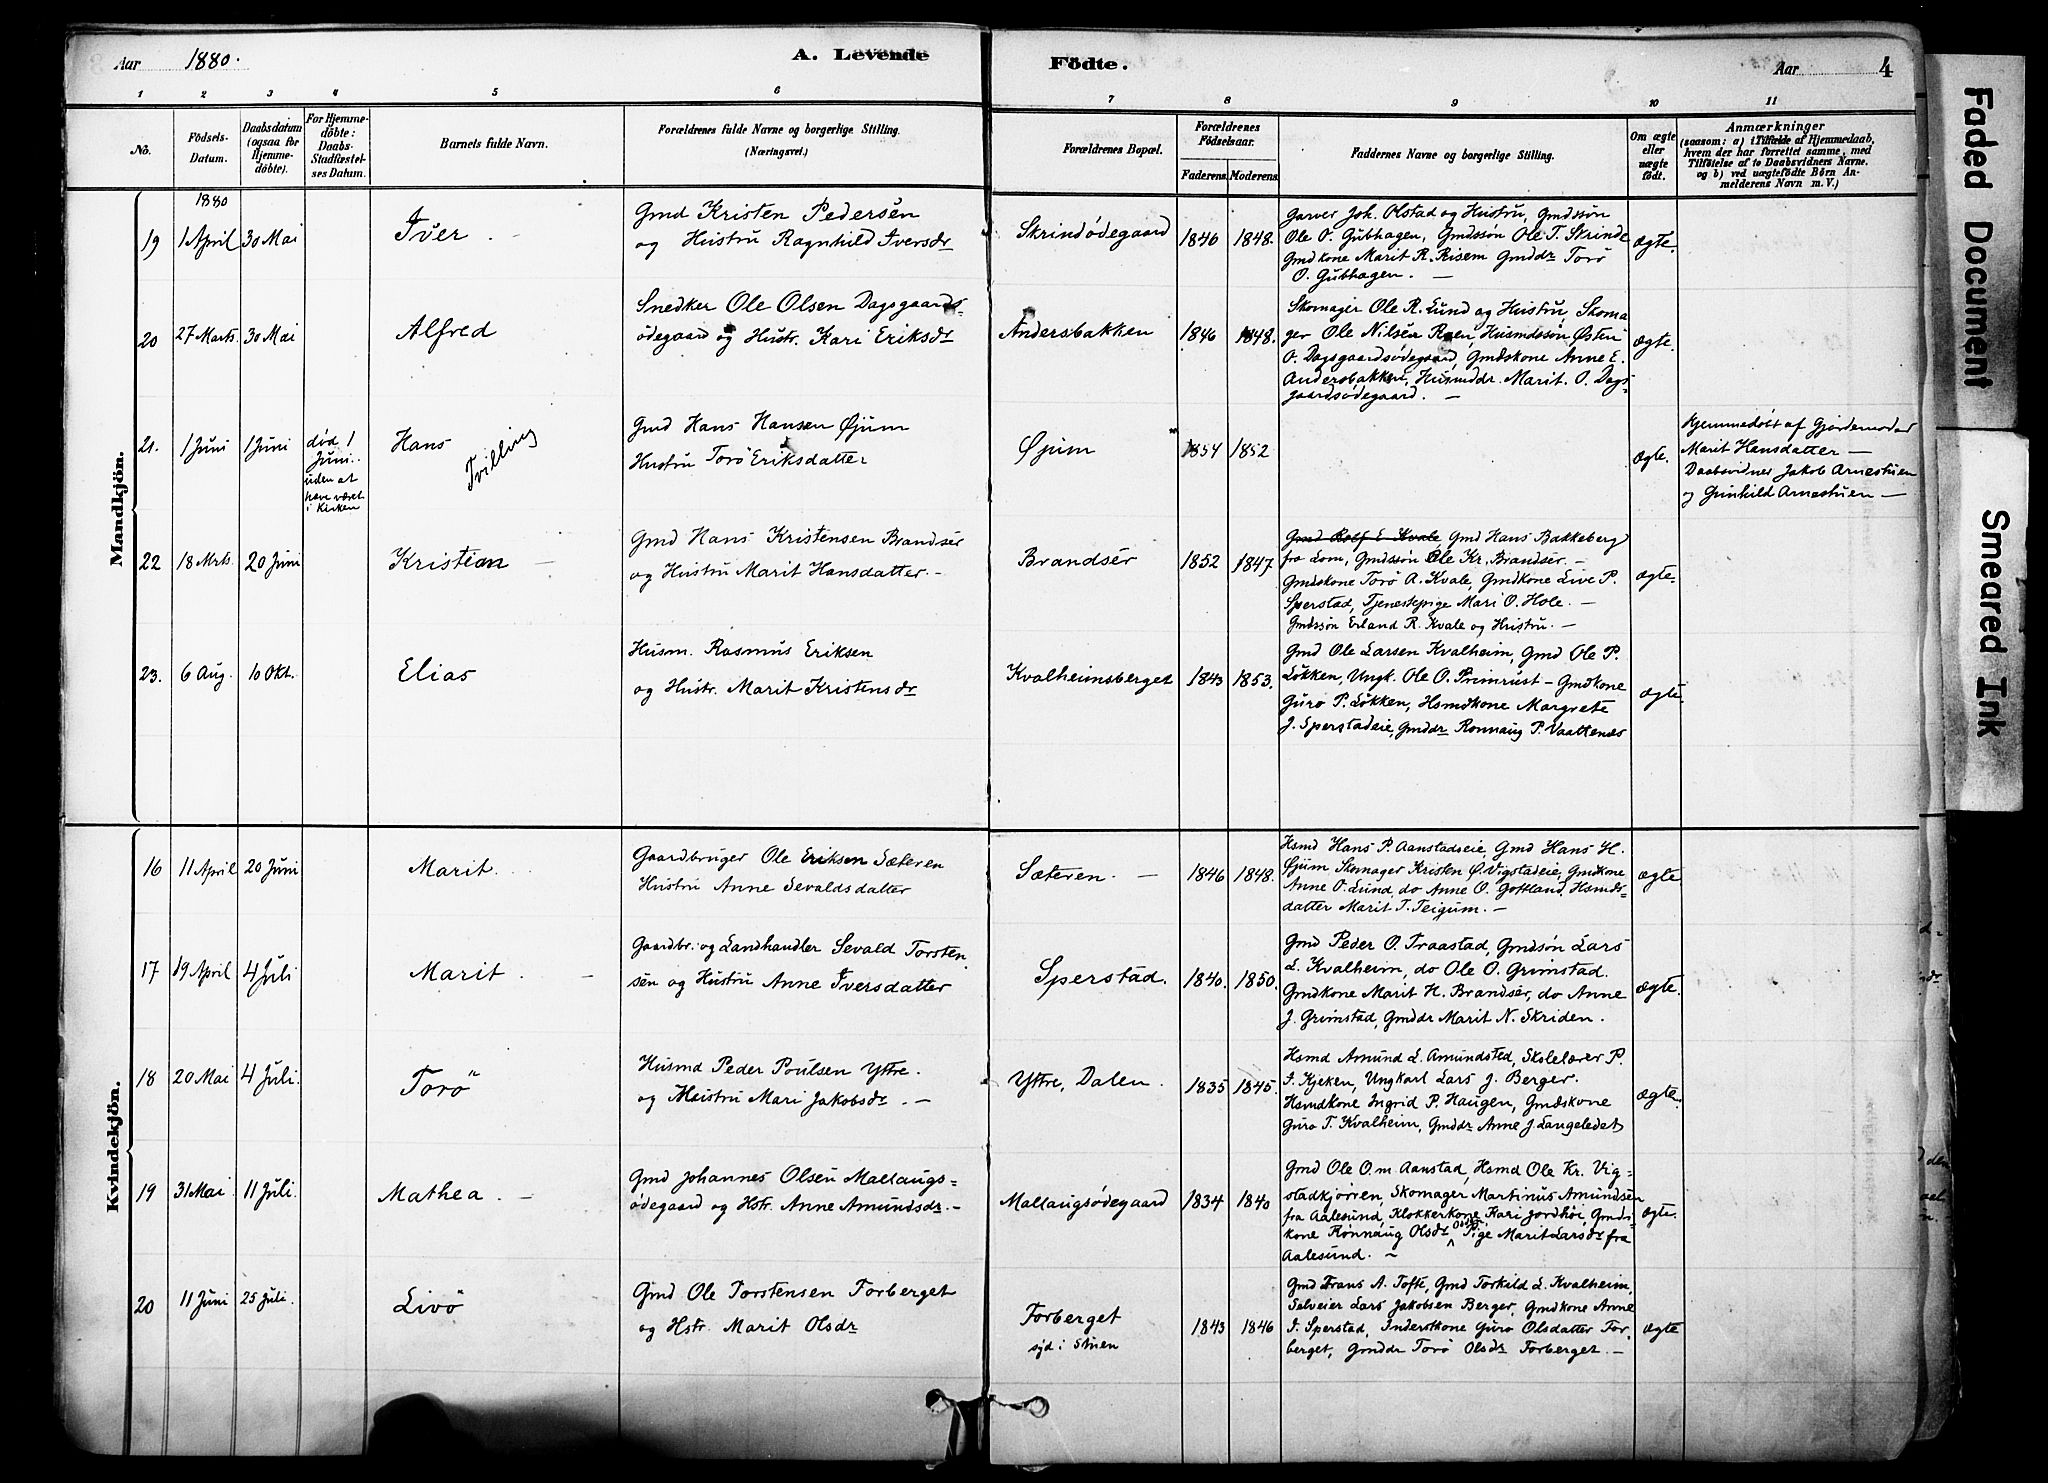 Aar 1880.
A. Levende
Födte.
Aar 4
1 2 3 4 5 6 7 8 9 10 11
No.
Födsels-
Datum.
Daabsdatum
(ogsaa for
Hjemme-
döbte).
For Hjemme-
döbte:
Daabs-
Stadfæstel-
ses Datum.
Barnets fulde Navn.
Forældrenes fulde Navne og borgerlige Stilling.
(Næringsvei.)
Forældrenes Bopæl.
Forældrenes
Födselsaar.
Faderens. Moderens.
Faddernes Navne og borgerlige Stilling.
Om ægte
eller
uægte
födt.
Anmærkninger
(saasom: a) i Tilfælde af Hjemmedaab,
hvem der har forrettet samme, med
Tilföielse af to Daabsvidners Navne.
og b) ved uægtefödte Börn An-
melderens Navn m. V.)
Mandkjön.
1880
19 1 April 30 Mai
Iver
Gmd Kristen Pedersen
og Hustru Ragnhild Iversdr
Skrindødegaard
1846 1848.
Garver Joh. Olstad og Hustru, Gmdssøn
Ole O. Gubhagen, Gmdssøn Ole T. Skrinde
Gmdkone Marit R. Risem Gmddr Torø
O. Gubhagen. —
ægte.
20 27 Marts 30 Mai
Alfred
Snedker Ole Olsen Dagsgaards-
ødegaard og Hustr. Kari Eriksdr
Andersbakken
1846 1848.
Skomager Ole R. Lund og Hustru, Skoma
ger Ole Nilsen Roen, Husmdssøn Østen
O. Dagsgaardsødegaard, Gmdskone Anne E.
Andersbakken, Husmddr. Marit. O. Dags-
gaardsødegaard. —
ægte.
21. 1 Juni 1 Juni
død 1
Juni.
uden at
have været
i Kirken
Hans
Tvilling
Gmd Hans Hansen Øjum
Hustru Torø Eriksdatter
Øjum
1854 1852
ægte.
Hjemmedøbt af Gjordemoder
Marit Hansdatter —
Daabsvidner Jakob Arnestuen
og Gunhild Arnestuen —
22 18 Mrts. 20 Juni
Kristian
Gmd Hans Kristensen Brandsér
og Hustru Marit Hansdatter. —
Brandsér
1852 1847.
Gmd Rolf E Kvale, Gmd Hans Bakkeberg
fra Lom, Gmdssøn Ole Kr. Brandsér. —
Gmdskone Torø A. Kvale, Gmdkone Live P.
Sperstad, Tjenestepige Mari O. Hole. —
Gmdssøn Erland R. Kvale og Hustru. —
ægte.
23. 6 Aug. 10 Okt.
Elias
Husm. Rasmus Eriksen
og Hustr. Marit Kristensdr
Kvalheimsberget
1843 1853.
Gmd Ole Larsen Kvalheim, Gmd Ole P.
Løkken, Ungk. Ole O. Primrust — Gmdkone
Guro P. Løkken, Hsmdkone Margrete
J. Sperstadeie, Gmddr Ronnaug P. Vaattenes
ægte.
Kvindekjön.
16 11 April 20 Juni
Marit.
Gaardbruger Ole Eriksen Sæteren
Hustru Anne Sevaldsdatter
Sæteren. —
1846 1848.
Hsmd Hans P. Aanstadseie, Gmd Hans H.
Øjum Skomager Kristen Ø. Vigstadeie, Gmdkone
Anne O. Lund, do Anne O. Gottland, Hsmds-
datter Marit T. Teigum. —
ægte
17 19 April 4 Juli
Marit.
Gaardbr. og Landhandler Sevald Torsten
sen og Hustru Anne Iversdatter
Sperstad.
1840. 1850.
Gmd Peder O. Traastad, Gmdsøn Lars
L. Kvalheim, do Ole O. Grimstad.
Gmdkone Marit H. Brandsér, do Anne
J. Grimstad, Gmddr Marit N. Skriden.
ægte.
18 20 Mai 4 Juli.
Torø
Husmd Peder Poulsen Yttre.
og Hustru Mari Jakobsdr. —
Yttre, Dalen.
1835 1845.
Hsmd Amund L. Amundsted, Skolelærer P.
I. Kjeken, Ungkarl Lars J. Berger.
Hsmdkone Ingrid P. Haugen, Gmdskone
Guro T. Kvalheim, Gmddr Anne J. Langeledet
ægte.
19 31 Mai. 11 Juli.
Mathea. —
Gmd Johannes Olsen Mallaugs-
ødegaard og Hstr. Anne Amundsdr. —
Mallaugsødegaard
1834 1840
Gmd Ole O.m Aanstad, Hsmd Ole Kr. Vig-
stadkjørren, Skomager Martinus Amundsen
fra Aalesund, Klokkerkone Kari Jordhøi, Gmds-
kone Rønnaug Olsdr Pige Marit Larsdr fra
Aalesund. —
ægte.
20 11 Juni 25 Juli.
Livø
Gmd Ole Torstensen Forberget
og Hstr. Marit Olsdr
Forberget
syd i Stuen
1843 1846
Gmd Frans A. Tofte, Gmd Torkild L. Kvalheim,
Selveier Lars Jakobsen Berger, Gmdkone Anne
I. Sperstad, Inderstkone Guro Olsdatter For-
berget, Gmddr Torø Olsdr Forberget. —
ægte
Faded Document
Smeared Ink